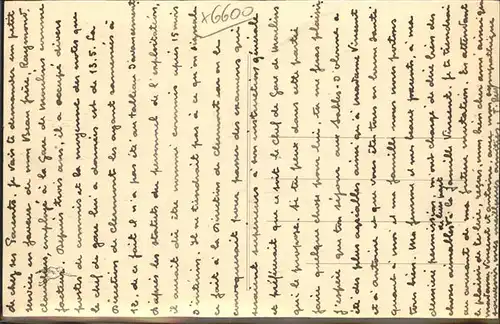 chez Je vais te demander un petit
service en faveur de mon beau frère Raymond,
employé à la Gare de Moulins comme
facteur. Depuis trois ans, il a occupé divers
postes de commis et la moyenne des notes que
le chef de gare lui a données est de 13.5. La
Direction de Clermont les ayant ramenées à
12. de ce fait il n'a pas été au tableau d'avancement
D'après les statuts du personnel de l'exploitation,
il aurait dû être nommé commis après 15 mois
d'intérim. Il ne tiendrait pas à ce qu'on signale
ce fait à la Direction de Clermont car on le
convoquerait pour passer des examens qui
seraient supérieurs à son instruction générale
et préférerait que ce soit le Chef de Gare de Moulins
qui le propose. Si tu peux dans cette portée
faire quelque chose pour lui, tu me feras plaisir
J'espère que ton séjour aux Sables-d'Olonne a
été des plus agréables ainsi qu'à Madame Vincent
et à Antoine et que vous êtes tous en bonne santé
quant à moi et ma famille nous nous portons
tous bien. Ma femme et mes beaux parents, à ma
dernière permission m'ont chargé de dire bien des
choses aimables à la famille Vincent. Je te tiendrai
au courant de ma future mutation. En attendant
le plaisir de te
X6600